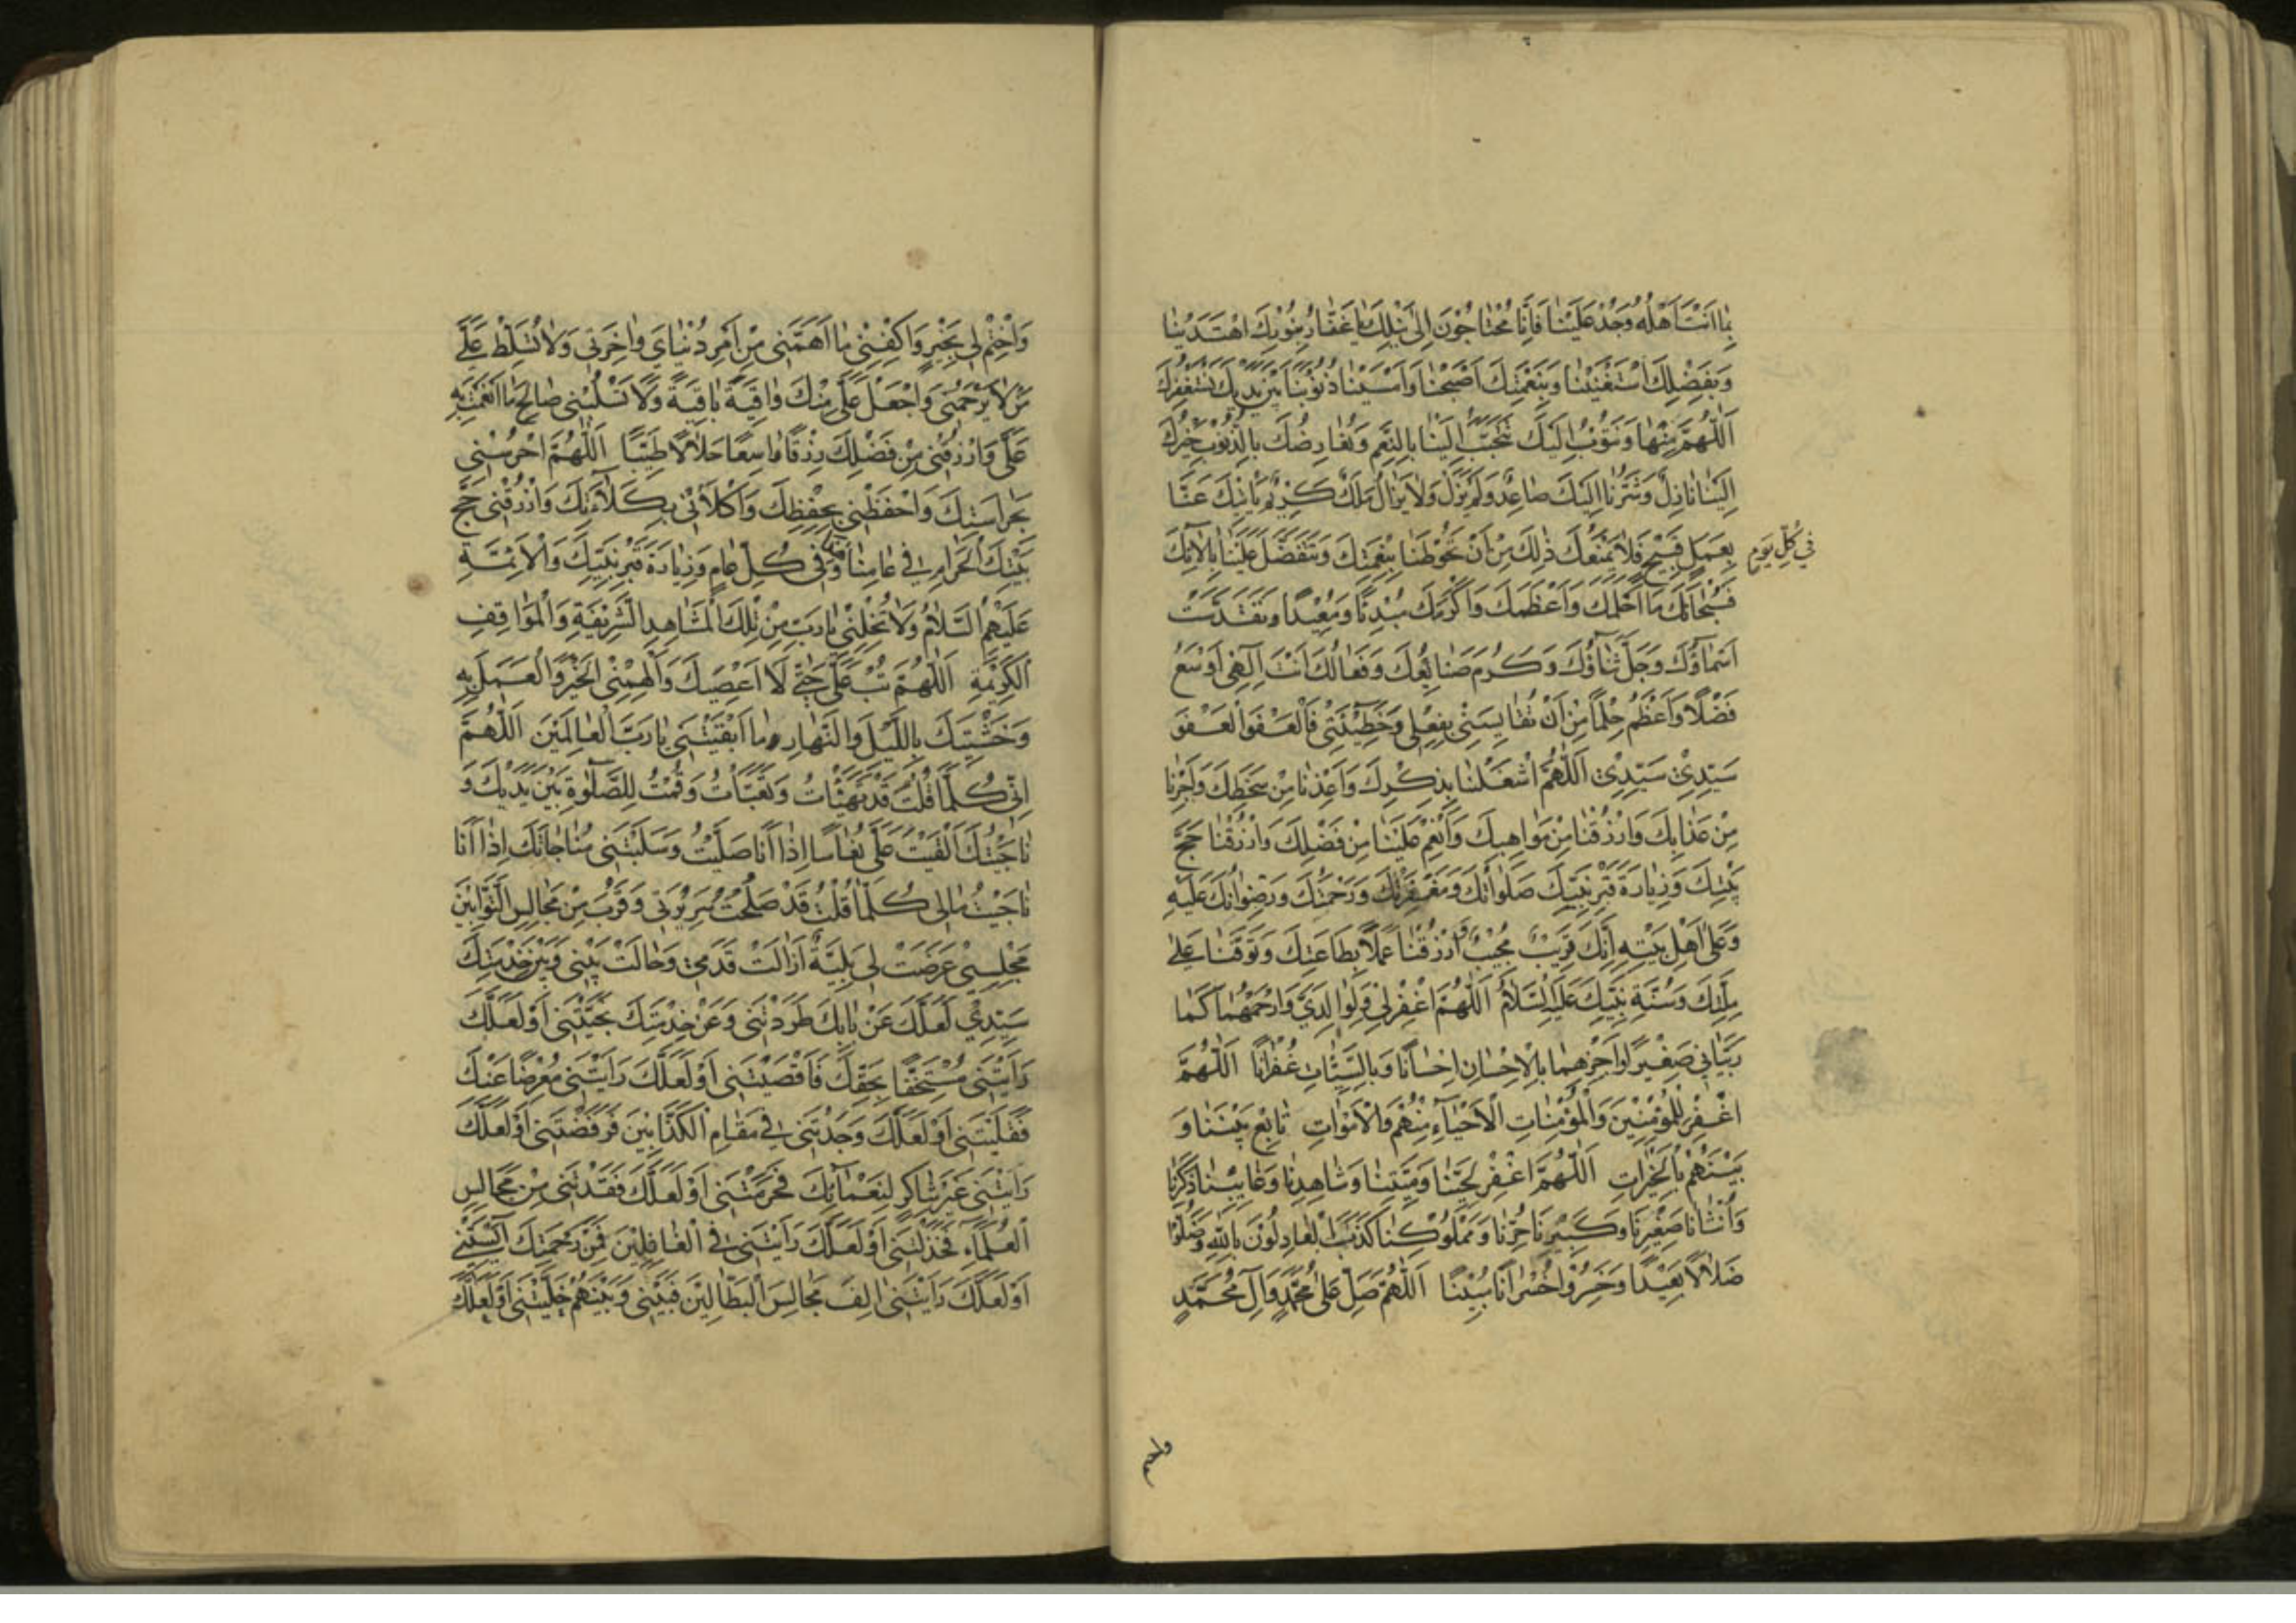 بِمَا اَنْتَ اَهْلُهُ وَجُدْ عَلَيْنَا فَاِنَّا مُحْتَاجُونَ اِلَى نَيْلِكَ يَا غَفَّارُ بِنُورِكَ اهْتَدَيْنَا
وَبِفَضْلِكَ اسْتَغْنَيْنَا وَبِنِعْمَتِكَ اَصْبَحْنَا وَاَمْسَيْنَا ذُنُوبُنَا بَيْنَ يَدَيْكَ نَسْتَغْفِرُكَ
اَللّٰهُمَّ مِنْهَا وَنَتُوبُ اِلَيْكَ تَتَحَبَّبُ اِلَيْنَا بِالنِّعَمِ وَنُعَارِضُكَ بِالذُّنُوبِ خَيْرُكَ
اِلَيْنَا نَازِلٌ وَشَرُّنَا اِلَيْكَ صَاعِدٌ وَلَمْ يَزَلْ وَلَا يَزَالُ مَلَكٌ كَرِيمٌ يَأْتِيكَ عَنَّا
فِي كُلِّ يَوْمٍ
بِعَمَلٍ قَبِيحٍ فَلَا يَمْنَعُكَ ذٰلِكَ مِنْ اَنْ تَحُوطَنَا بِنِعْمَتِكَ وَتَتَفَضَّلَ عَلَيْنَا بِاٰلَائِكَ
فَسُبْحَانَكَ مَا اَحْلَمَكَ وَاَعْظَمَكَ وَاَكْرَمَكَ مُبْدِئًا وَمُعِيدًا وَتَقَدَّسَتْ
اَسْمَاؤُكَ وَجَلَّ ثَنَاؤُكَ وَكَرُمَ صَنَائِعُكَ وَفَعَالُكَ اَنْتَ اِلٰهِي اَوْسَعُ
فَضْلًا وَاَعْظَمُ حِلْمًا مِنْ اَنْ تُقَايِسَنِي بِفِعْلِي وَخَطِيئَتِي فَالْعَفْوَ الْعَفْوَ
سَيِّدِي سَيِّدِي اَللّٰهُمَّ اشْغَلْنَا بِذِكْرِكَ وَاَعِذْنَا مِنْ سَخَطِكَ وَاَجِرْنَا
مِنْ عَذَابِكَ وَارْزُقْنَا مِنْ مَوَاهِبِكَ وَاَنْعِمْ عَلَيْنَا مِنْ فَضْلِكَ وَارْزُقْنَا حَجَّ
بَيْتِكَ وَزِيَارَةَ قَبْرِ نَبِيِّكَ صَلَوَاتُكَ وَمَغْفِرَتُكَ وَرَحْمَتُكَ وَرِضْوَانُكَ عَلَيْهِ
وَعَلَى اَهْلِ بَيْتِهِ اِنَّكَ قَرِيبٌ مُجِيبٌ وَارْزُقْنَا عَمَلًا بِطَاعَتِكَ وَتَوَفَّنَا عَلَى
مِلَّتِكَ وَسُنَّةِ نَبِيِّكَ عَلَيْهِ السَّلَامُ اَللّٰهُمَّ اغْفِرْ لِي وَلِوَالِدَيَّ وَارْحَمْهُمَا كَمَا
رَبَّيَانِي صَغِيرًا وَاجْزِهِمَا بِالْاِحْسَانِ اِحْسَانًا وَبِالسَّيِّئَاتِ غُفْرَانًا اَللّٰهُمَّ
اغْفِرْ لِلْمُؤْمِنِينَ وَالْمُؤْمِنَاتِ الْاَحْيَاءِ مِنْهُمْ وَالْاَمْوَاتِ تَابِعْ بَيْنَنَا وَ
بَيْنَهُمْ بِالْخَيْرَاتِ اَللّٰهُمَّ اغْفِرْ لِحَيِّنَا وَمَيِّتِنَا وَشَاهِدِنَا وَغَائِبِنَا ذَكَرِنَا
وَاُنْثَانَا صَغِيرِنَا وَكَبِيرِنَا حُرِّنَا وَمَمْلُوكِنَا كَذَبَ الْعَادِلُونَ بِاللّٰهِ وَضَلُّوا
ضَلَالًا بَعِيدًا وَخَسِرُوا خُسْرَانًا مُبِينًا اَللّٰهُمَّ صَلِّ عَلَى مُحَمَّدٍ وَاٰلِ مُحَمَّدٍ
وَاخْتِمْ لِي بِخَيْرٍ وَاكْفِنِي مَا اَهَمَّنِي مِنْ اَمْرِ دُنْيَايَ وَاٰخِرَتِي وَلَا تُسَلِّطْ عَلَيَّ
مَنْ لَا يَرْحَمُنِي وَاجْعَلْ عَلَيَّ مِنْكَ وَاقِيَةً بَاقِيَةً وَلَا تَسْلُبْنِي صَالِحَ مَا اَنْعَمْتَ بِهِ
عَلَيَّ وَارْزُقْنِي مِنْ فَضْلِكَ رِزْقًا وَاسِعًا حَلَالًا طَيِّبًا اَللّٰهُمَّ احْرُسْنِي
بِحَرَاسَتِكَ وَاحْفَظْنِي بِحِفْظِكَ وَاكْلَأْنِي بِكَلَاءَتِكَ وَارْزُقْنِي حَجَّ
بَيْتِكَ الْحَرَامِ فِي عَامِنَا هٰذَا وَفِي كُلِّ عَامٍ وَزِيَارَةَ قَبْرِ نَبِيِّكَ وَالْاَئِمَّةِ
عَلَيْهِمُ السَّلَامُ وَلَا تُخْلِنِي يَا رَبِّ مِنْ تِلْكَ الْمَشَاهِدِ الشَّرِيفَةِ وَالْمَوَاقِفِ
الْكَرِيمَةِ اَللّٰهُمَّ تُبْ عَلَيَّ حَتَّى لَا اَعْصِيَكَ وَاَلْهِمْنِي الْخَيْرَ وَالْعَمَلَ بِهِ
وَخَشْيَتَكَ بِاللَّيْلِ وَالنَّهَارِ مَا اَبْقَيْتَنِي يَا رَبَّ الْعَالَمِينَ اَللّٰهُمَّ
اِنِّي كُلَّمَا قُلْتُ قَدْ تَهَيَّأْتُ وَتَعَبَّأْتُ وَقُمْتُ لِلصَّلٰوةِ بَيْنَ يَدَيْكَ وَ
نَاجَيْتُكَ اَلْقَيْتَ عَلَيَّ نُعَاسًا اِذَا اَنَا صَلَّيْتُ وَسَلَبْتَنِي مُنَاجَاتَكَ اِذَا اَنَا
نَاجَيْتُ مَا لِي كُلَّمَا قُلْتُ قَدْ صَلُحَتْ سَرِيرَتِي وَقَرُبَ مِنْ مَجَالِسِ التَّوَّابِينَ
مَجْلِسِي عَرَضَتْ لِي بَلِيَّةٌ اَزَالَتْ قَدَمِي وَحَالَتْ بَيْنِي وَبَيْنَ خِدْمَتِكَ
سَيِّدِي لَعَلَّكَ عَنْ بَابِكَ طَرَدْتَنِي وَعَنْ خِدْمَتِكَ نَحَّيْتَنِي اَوْ لَعَلَّكَ
رَاَيْتَنِي مُسْتَخِفًّا بِحَقِّكَ فَاَقْصَيْتَنِي اَوْ لَعَلَّكَ رَاَيْتَنِي مُعْرِضًا عَنْكَ
فَقَلَيْتَنِي اَوْ لَعَلَّكَ وَجَدْتَنِي فِي مَقَامِ الْكَذَّابِينَ فَرَفَضْتَنِي اَوْ لَعَلَّكَ
رَاَيْتَنِي غَيْرَ شَاكِرٍ لِنَعْمَائِكَ فَحَرَمْتَنِي اَوْ لَعَلَّكَ فَقَدْتَنِي مِنْ مَجَالِسِ
الْعُلَمَاءِ فَخَذَلْتَنِي اَوْ لَعَلَّكَ رَاَيْتَنِي فِي الْغَافِلِينَ فَمِنْ رَحْمَتِكَ اٰيَسْتَنِي
اَوْ لَعَلَّكَ رَاَيْتَنِي اٰلِفَ مَجَالِسِ الْبَطَّالِينَ فَبَيْنِي وَبَيْنَهُمْ خَلَّيْتَنِي اَوْ لَعَلَّكَ